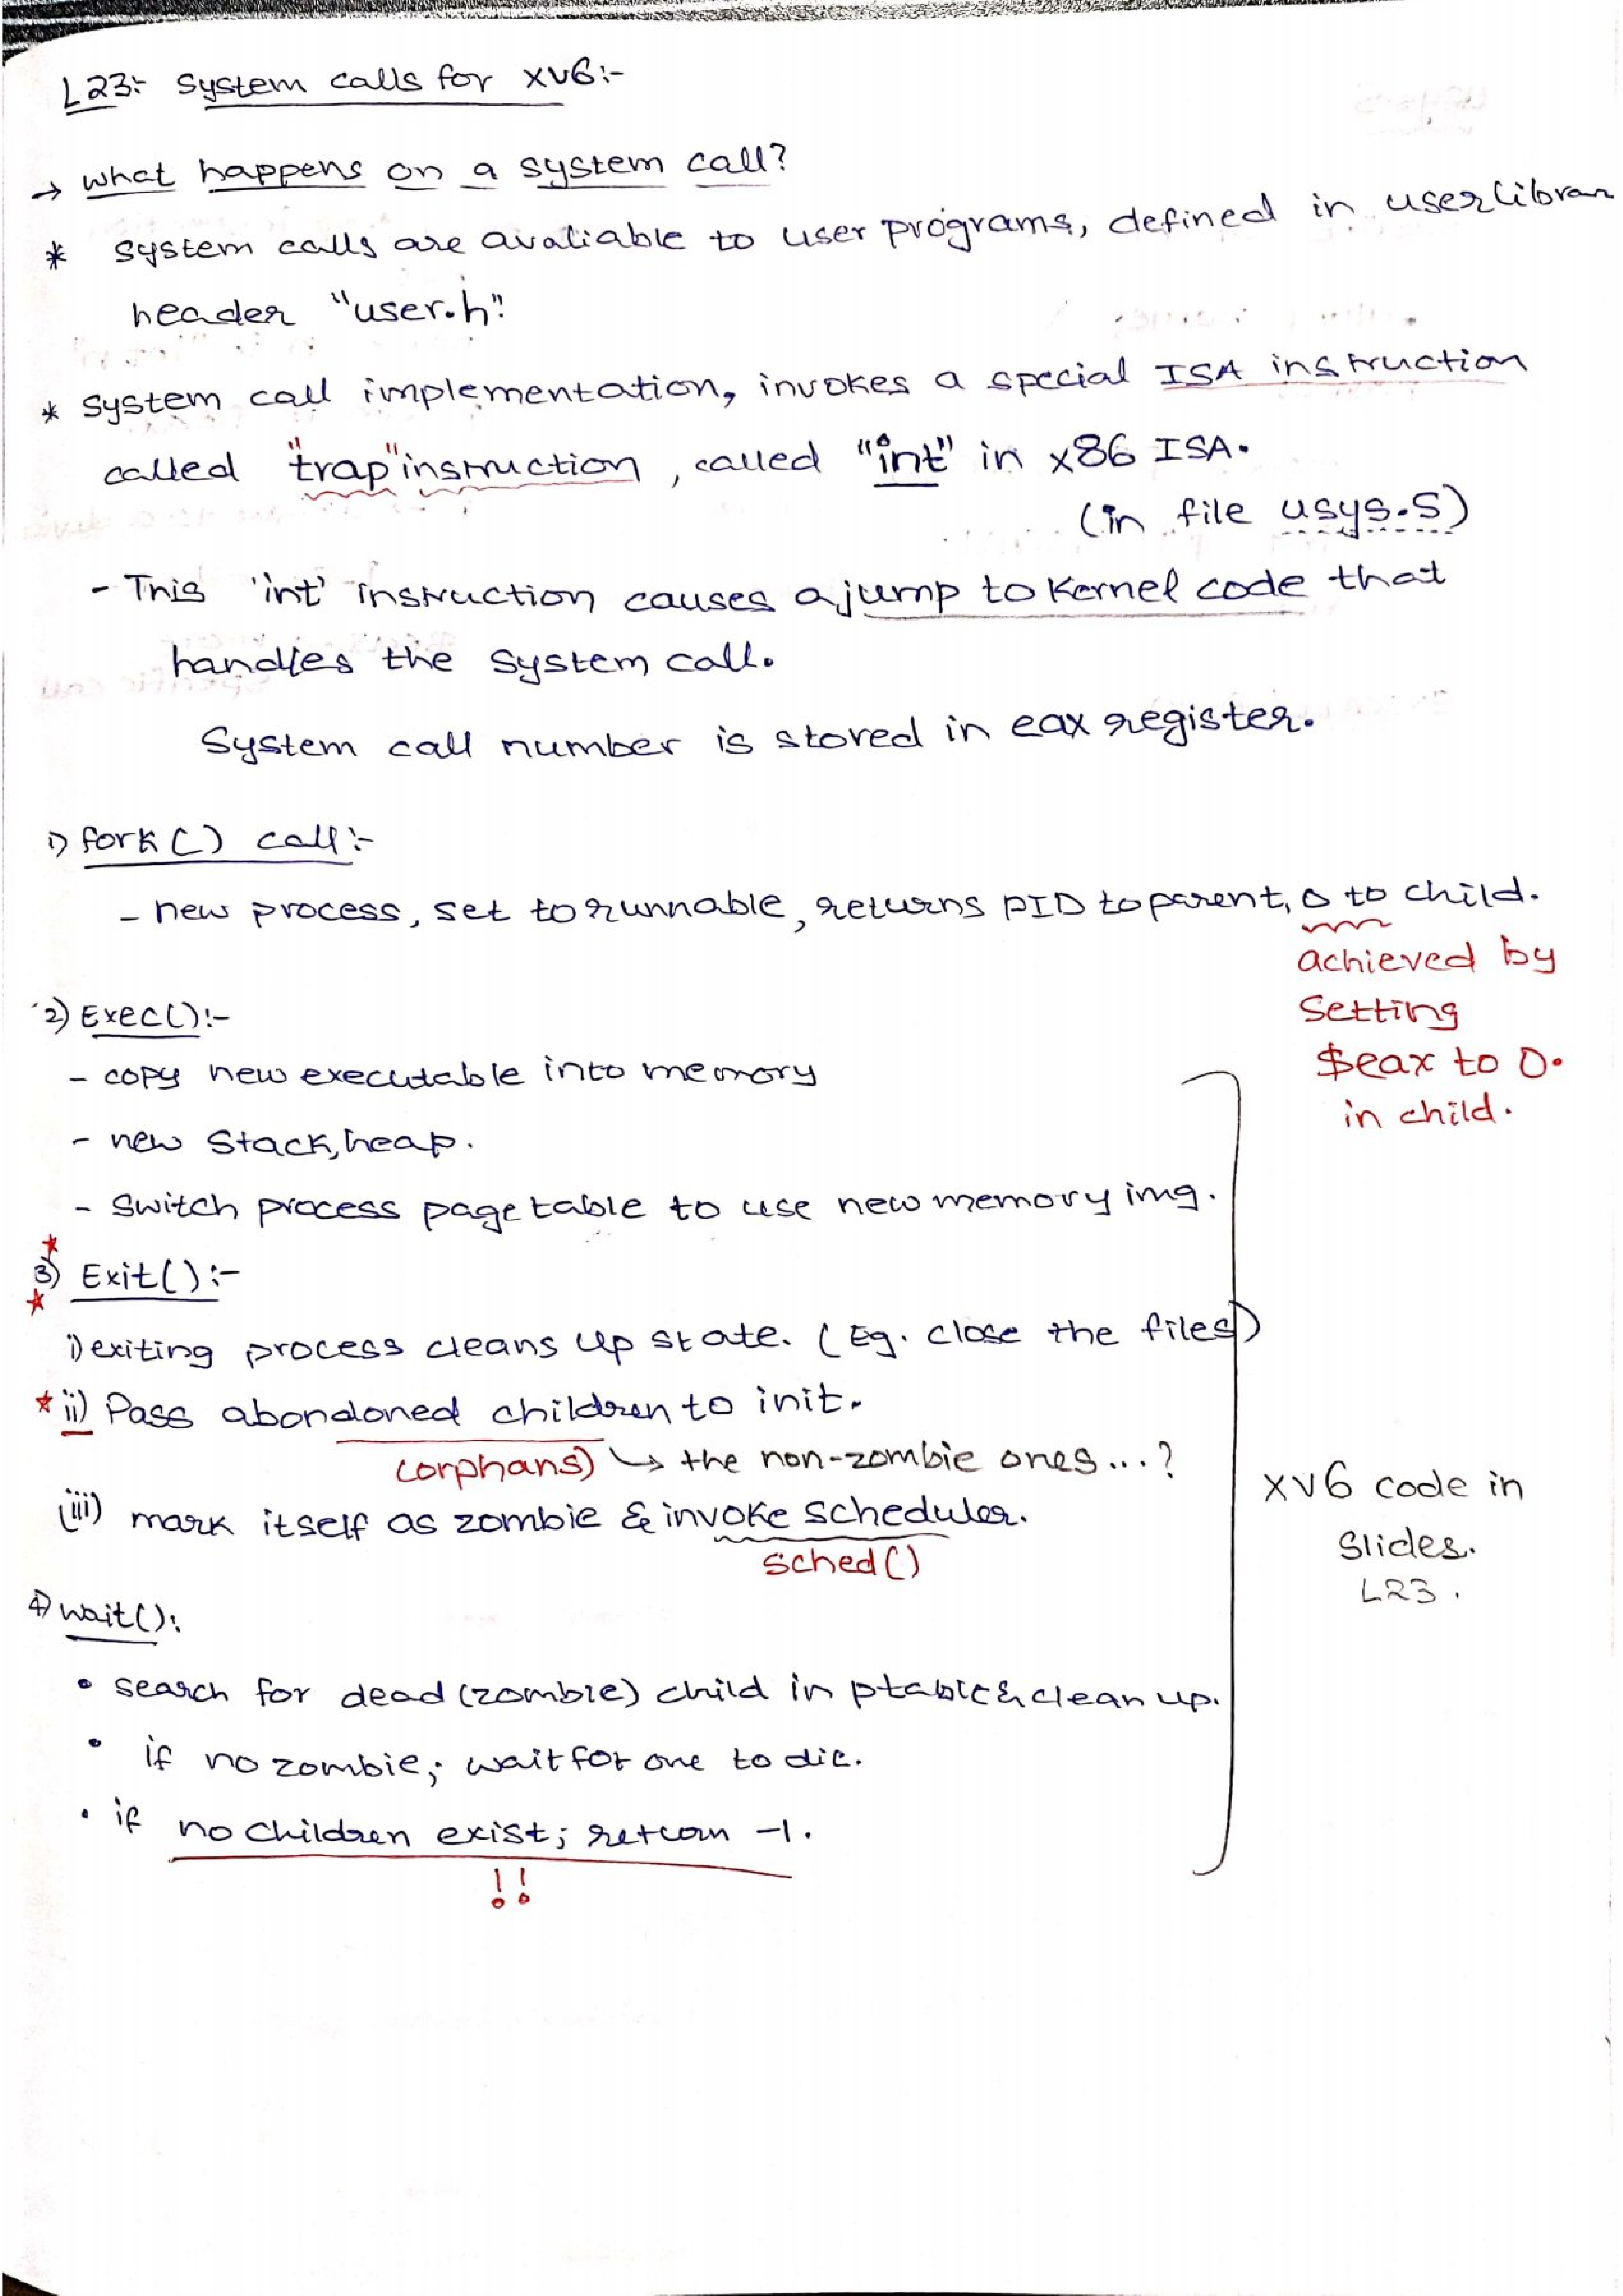 L23:- System calls for xv6:-
→ what happens on a system call?
* system calls are avaliable to user programs, defined in user librar
header "user.h"
* system call implementation, invokes a special ISA instruction
called "trap" instruction, called "int" in x86 ISA.
(in file usys.S)
- This 'int' instruction causes a jump to kernel code that
handles the system call.
System call number is stored in eax register.
1) fork() call:-
- new process, set to runnable, returns PID to parent, 0 to child.
achieved by
setting
$eax to 0.
in child.
2) Exec():-
- copy new executable into memory
- new stack, heap.
- Switch process page table to use new memory img.
3) Exit():-
i) exiting process cleans up state. (Eg. close the files)
* ii) Pass abondoned children to init.
(orphans) ↳ the non-zombie ones...?
(iii) mark itself as zombie & invoke scheduler.
sched()
xv6 code in
slides.
L23.
4) wait():
• search for dead (zombie) child in ptable & clean up.
• if no zombie; wait for one to die.
• if no children exist; return -1.
!!